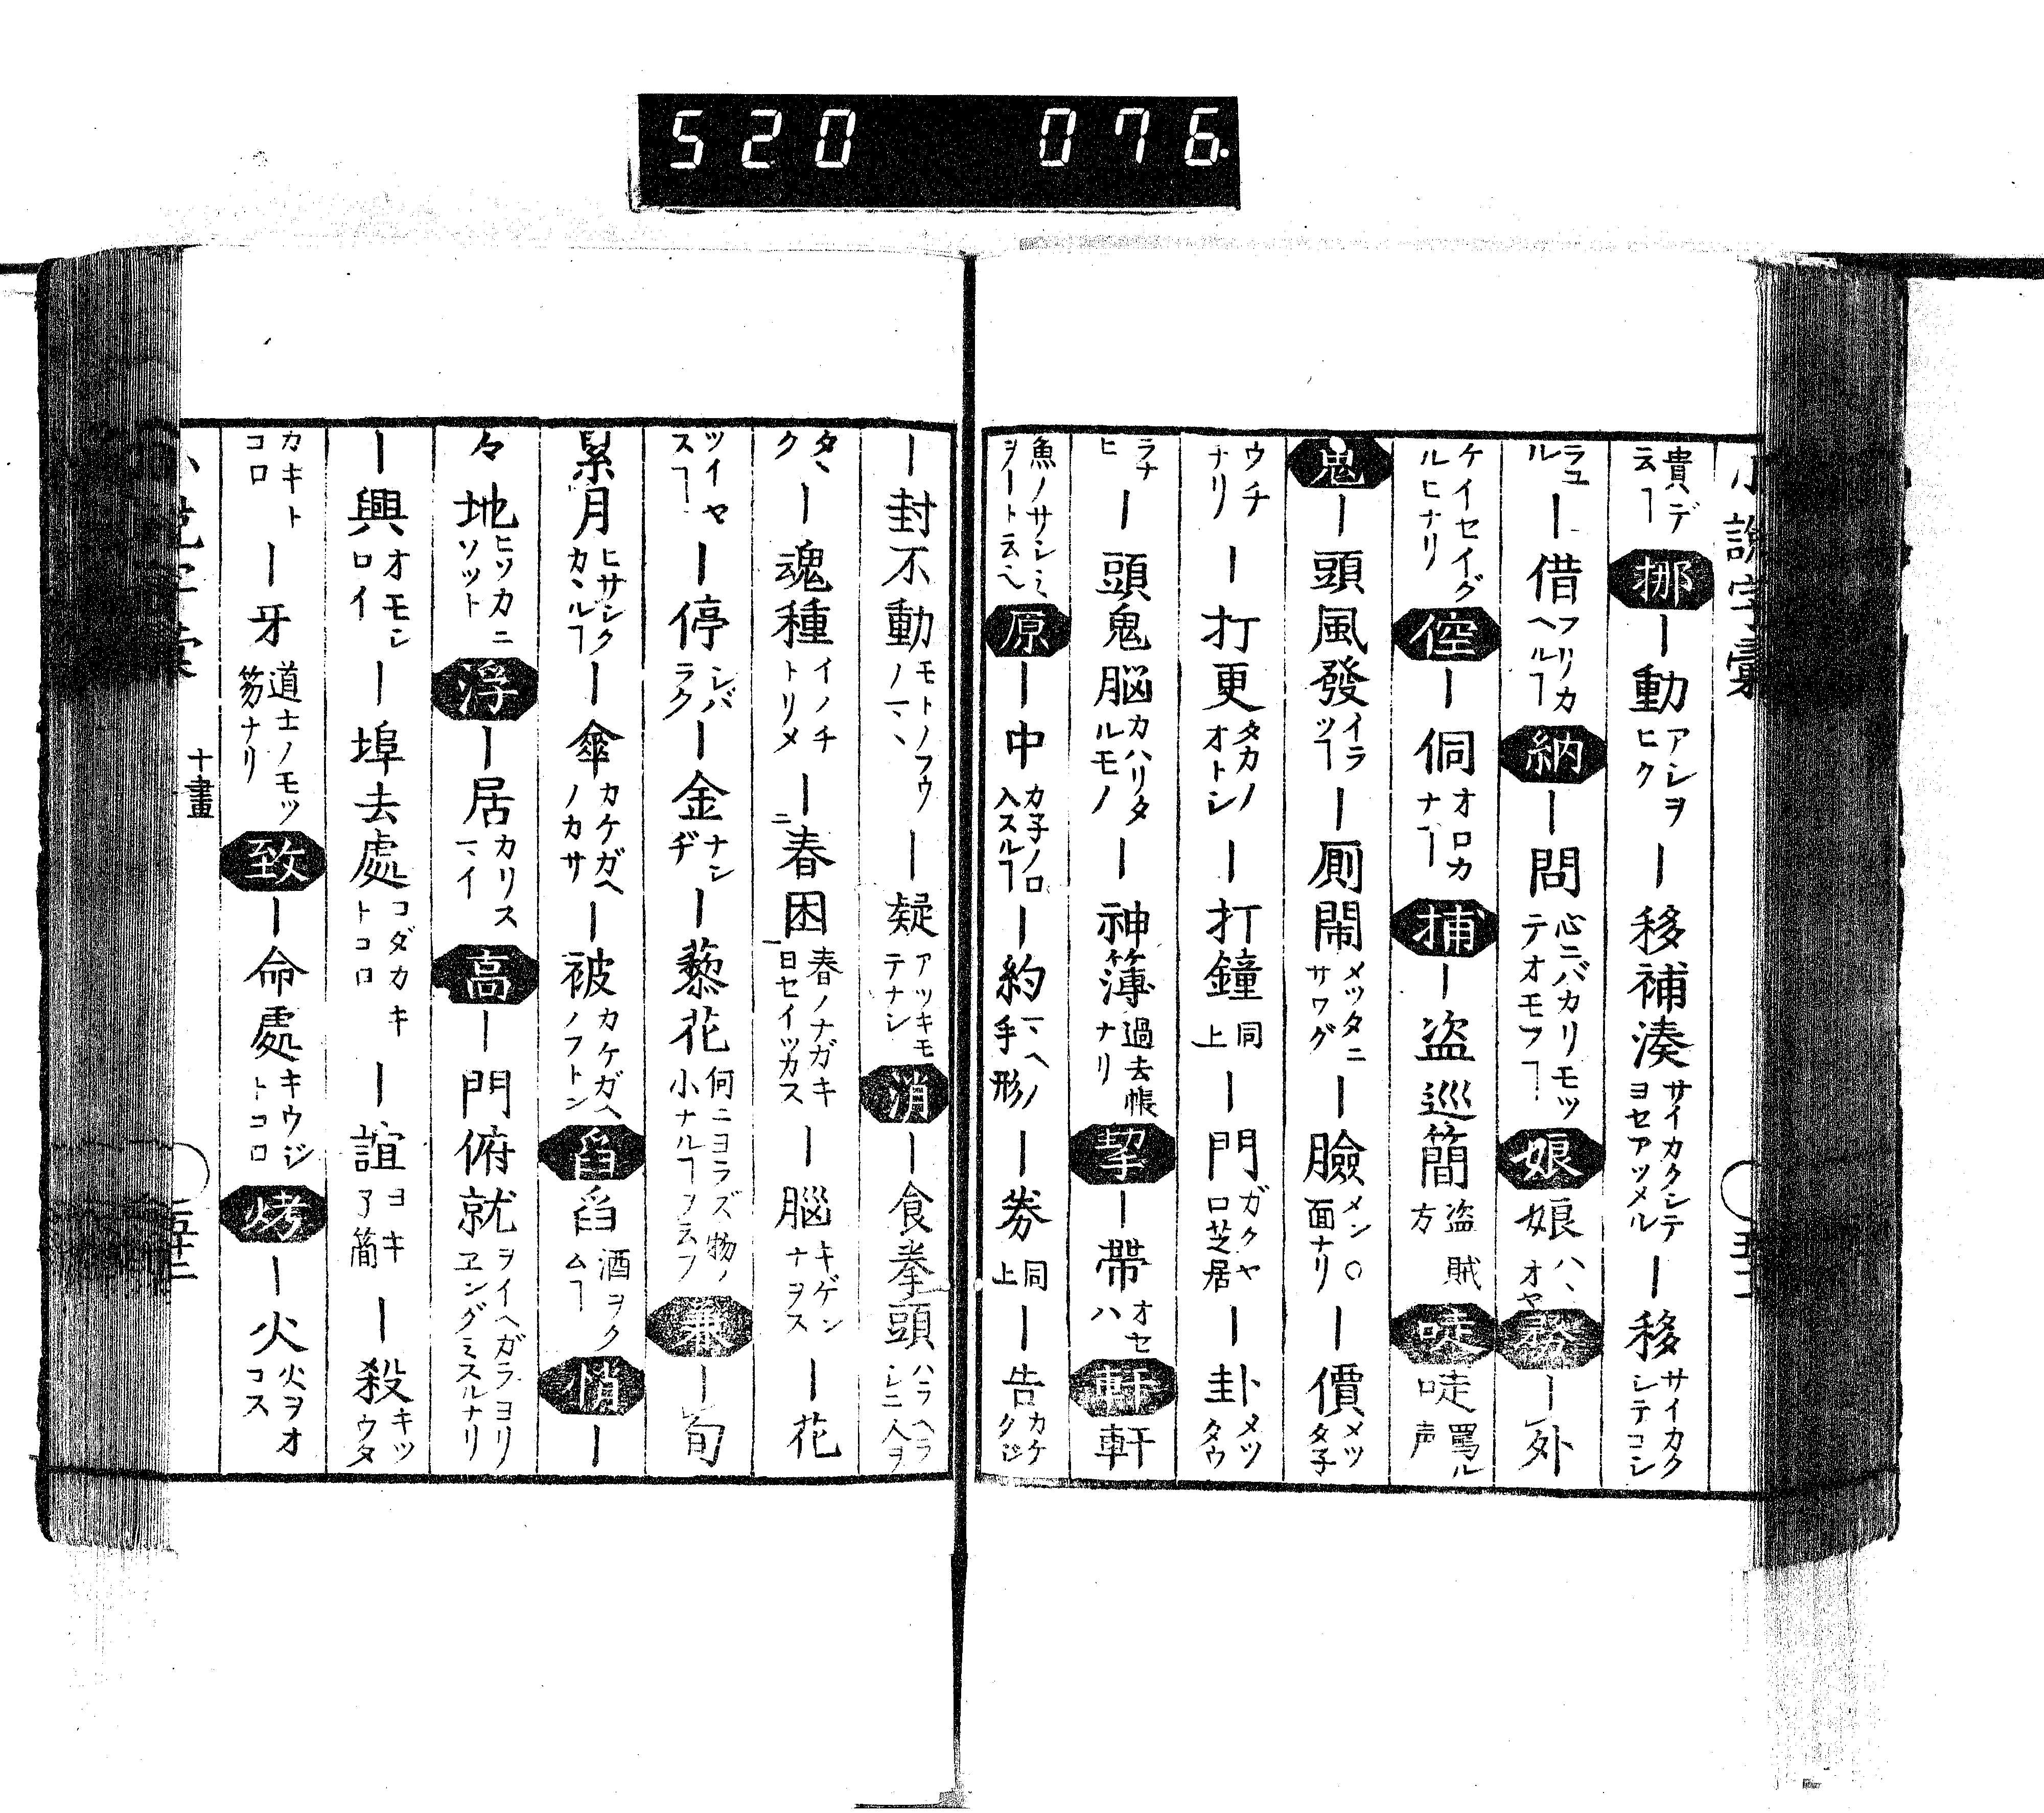 520 076.
小説字彙
貴デ云ヿ 挪 ー動 アシヲヒク ー移補湊 サイカクシテヨセアツメル ー移 サイカクシテコシ
ラユル ー借 フリカヘルヿ 納 ー問 心ニバカリモツテオモフヿ 娘 娘 ハヽオヤ 務 ー外
ケイセイグルヒナリ 倥 ー侗 オロカナヿ 捕 ー盗巡簡 盗賊方 唗 唗 罵ル声
鬼 ー頭風發 イラツヿ ー厠鬧 メツタニサワグ ー臉 メン○面ナリ ー價 メツタ子
ウチナリ ー打更 タカノオトシ ー打鐘 同上 ー門 ガクヤ口芝居 ー卦 メツタウ
ラナヒ ー頭鬼脳 カハリタルモノ ー神簿 過去帳ナリ 挈 ー帶 オセハ 軒 軒
魚ノサシミヲート云ヘ 原 ー中 カ子ノ口入スルヿ ー約 マヘノ手形 ー券 同上 ー告 カケクジ
ー封不動 モトノフウノマヽ ー疑 アツキモテナシ 消 ー食拳頭 ハラヘラシニ人ヲ
タヽク ー魂種 イノチトリメ ー春困 春ノナガキニ日セイツカス ー脳 キゲンナヲス ー花
ツイヤスヿ ー停 シバラク ー金 ナンヂ ー藜花 何ニヨラズ物ノ小ナルヿヲ云フ 兼 ー旬
累月 ヒサシクカヽルヿ ー傘 カケガヘノカサ ー被 カケガヘノフトン 舀 舀 酒ヲクムヿ 悄 ー
々地 ヒソカニソツト 浮 ー居 カリスマイ 高 ー門俯就 ヲイヘガラヨリヱングミスルナリ
ー興 オモシロイ ー埠去處 コダカキトコロ ー誼 ヨキ了簡 ー殺 キツウタ
カキトコロ ー牙 道士ノモツ笏ナリ 致 ー命處 キウジトコロ 烤 ー火 火ヲオコス
十畫